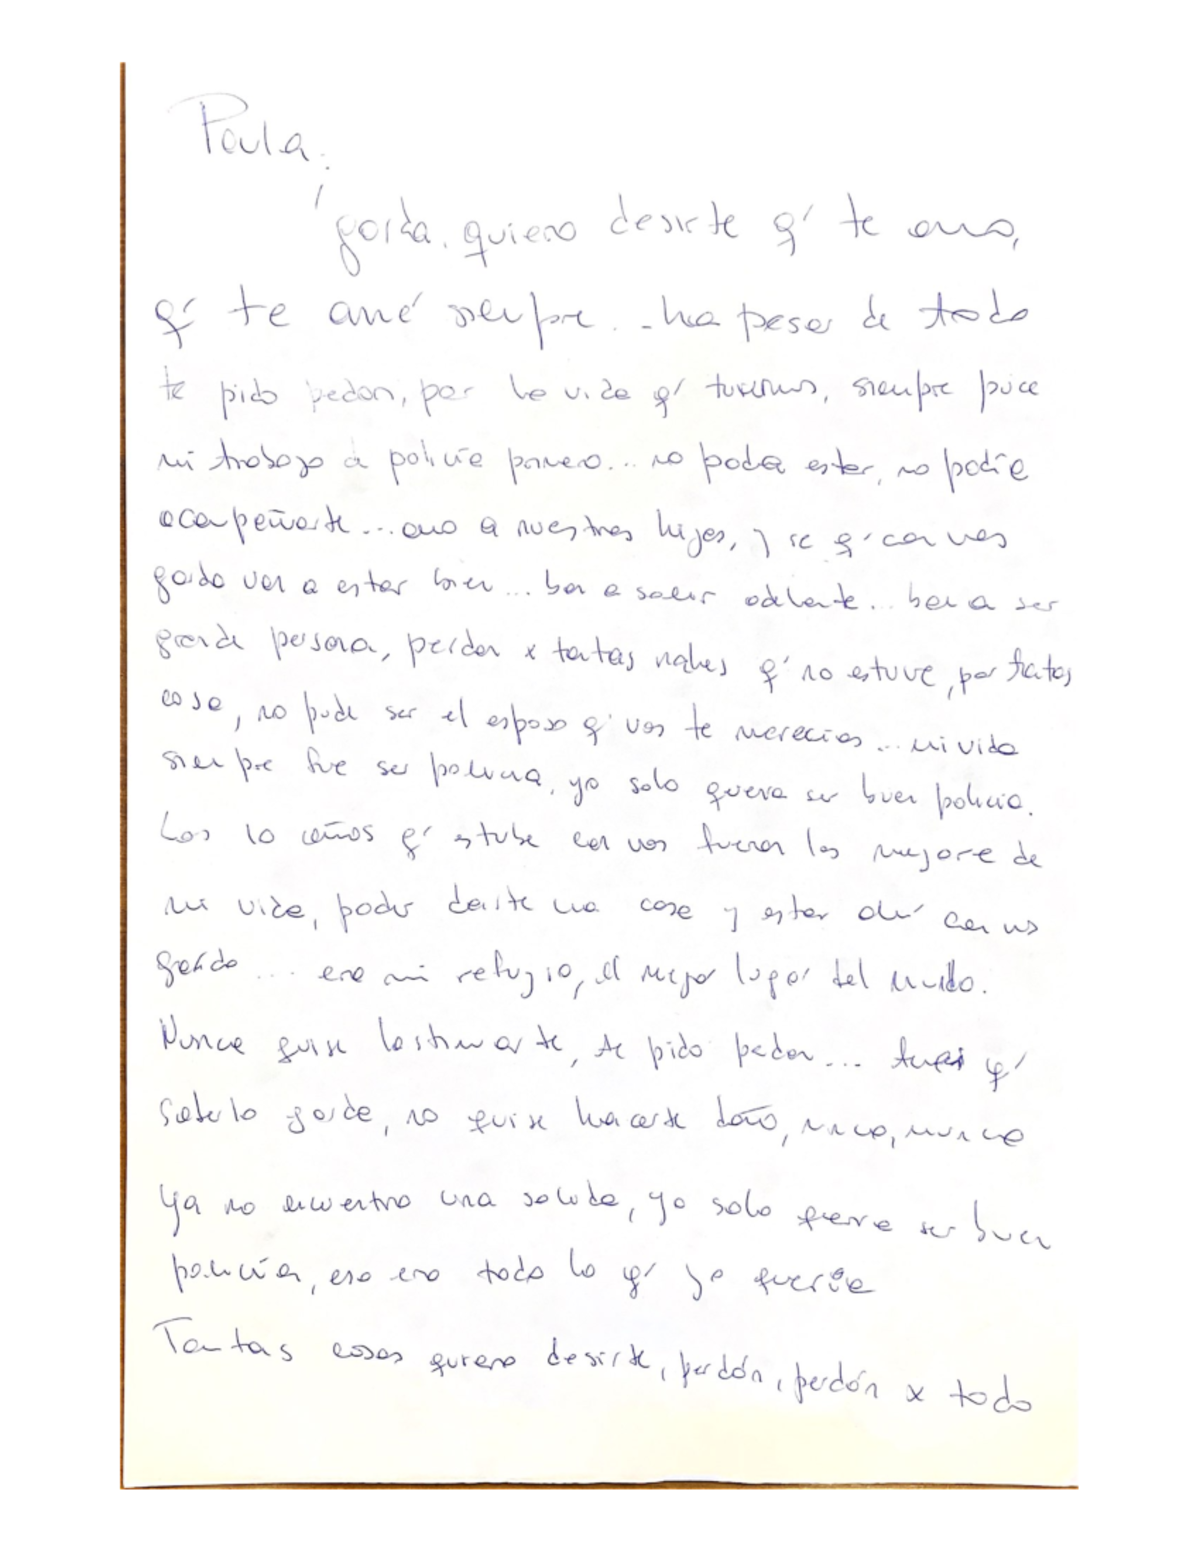 Paula:
gorda, quiero desirte q' te amo,
q' te amé siempre... ha pesar de todo
te pido pedon, por la vida q' tuvimos, siempre puce
mi trabajo d policía primero... no podia estar, no podía
acompeñarte... amo a nuestros hijos, y se q' con vos
gorda van a estar bien... ban a salir adelante... ban a ser
grande persona, perdon x tantas nohes q' no estuve, por tratas
cosa, no pude ser el esposo q' vos te merecias... mi vida
siempre fue ser policia, yo solo queria ser buen policia.
Los 10 años q' estube con vos fueron los mejore de
mi vida, poder darte una casa y estar ahí con vos
gorda... era mi refugio, el mejor lugar del mundo.
Nunca quise lastimarte, te pido pedon... q'
saberlo gorda, no quise hacerte daño, nunca, nunca
Ya no encuentro una salida, yo solo queria ser buen
policía, eso era todo lo q' yo quería
Tantas cosas quiero desirte, perdón, perdón x todo